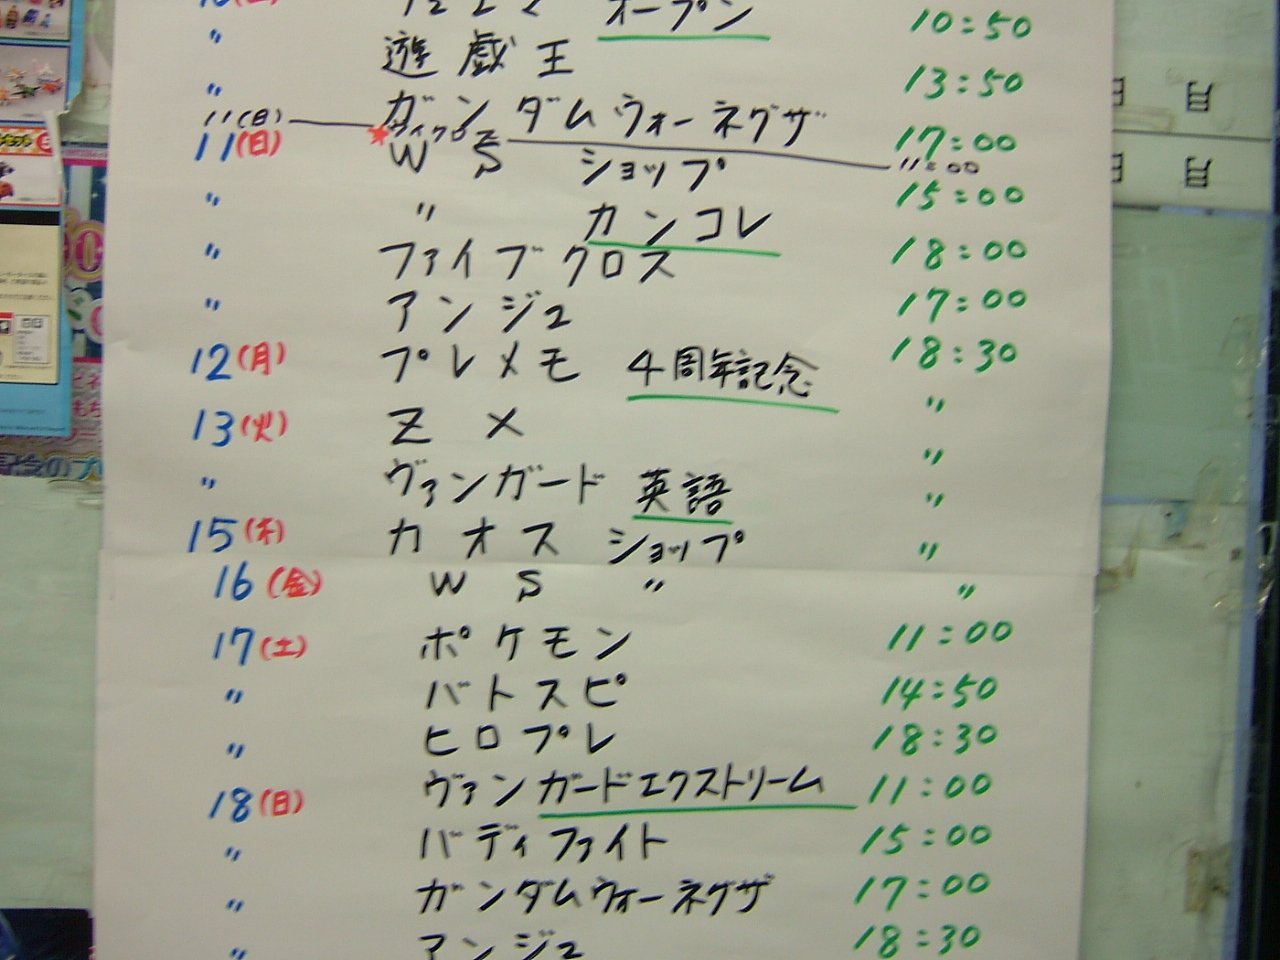 オープン 10:50
〃 遊戯王 13:50
〃 ガンダムウォーネグザ 17:00
11(日) ヴィクロス 11:00
11(日) WS ショップ 15:00
〃 〃 カンコレ 18:00
〃 ファイブクロス 17:00
〃 アンジュ 18:30
12(月) プレメモ 4周年記念 〃
13(火) Z メ 〃
〃 ヴァンガード 英語 〃
15(木) カオス ショップ 〃
16(金) WS 〃 〃
17(土) ポケモン 11:00
〃 バトスピ 14:50
〃 ヒロプレ 18:30
18(日) ヴァンガードエクストリーム 11:00
〃 バディファイト 15:00
〃 ガンダムウォーネグザ 17:00
〃 アンジュ 18:30
月
月